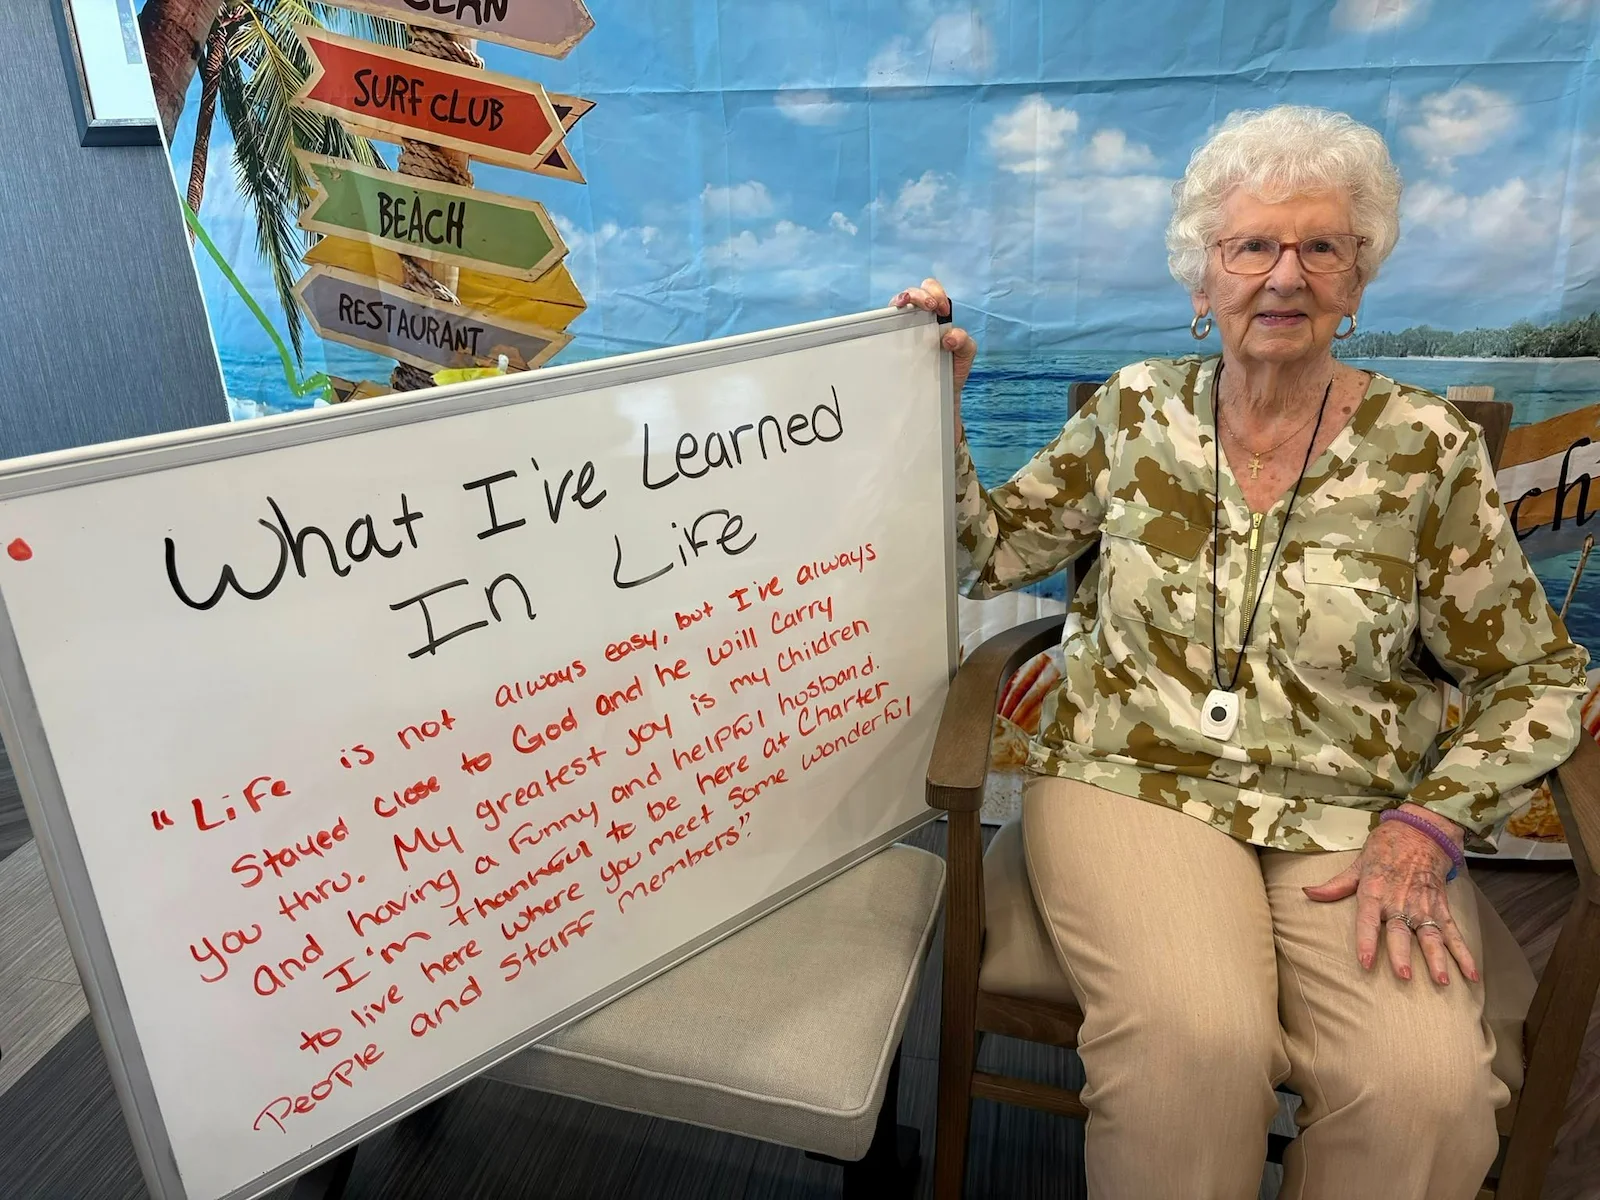 CLAN
SURF CLUB
BEACH
RESTAURANT
What I've Learned
In Life
"Life is not always easy, but I've always
stayed close to God and he will carry
you thru. My greatest joy is my children
and having a funny and helpful husband.
I'm thankful to be here at Charter
to live here where you meet some wonderful
People and staff members".
ch